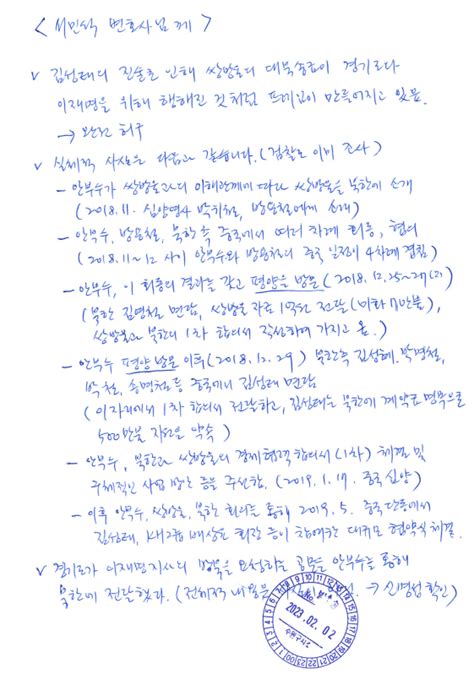 < 서민석 변호사님께 >
v 김성태의 진술로 인해 쌍방울의 대북송금이 경기도나
이재명을 위해 행해진 것처럼 프레임이 만들어지고 있음.
→ 완전 허구
v 실체적 사실은 다음과 같습니다. (검찰도 이미 조사)
- 안부수가 쌍방울과의 이해관계에 따라 쌍방울을 북한에 소개
(2018.11. 심양영사 박치철, 방용철에게 소개)
- 안부수, 방용철, 북한측 중국에서 여러 차례 회동, 협의
(2018.11~12 사이 안부수와 방용철의 중국 일정이 4차례 겹침)
- 안부수, 이 회동의 결과를 갖고 평양을 방문 (2018.12.25~27(29))
(북한 김영철 면담, 쌍방울 자료 1억원 전달 (미화 7만불),
쌍방울과 북한의 1차 합의서 작성하여 가지고 옴.)
- 안부수 평양 방문 이후 (2018.12.29) 북한측 김성혜, 박명철,
박철, 송명철 등 중국에서 김성태 면담
(이 자리에서 1차 합의서 전달하고, 김성태는 북한에 계약금 명목으로
500만불 지원을 약속)
- 안부수, 북한과 쌍방울의 경제협력 합의서 (1차) 체결 및
구체적인 사업 방안 등을 주선함. (2019.1.17. 중국 심양)
- 이후 안부수, 쌍방울, 북한 회의를 통해 2019.5. 중국 단동에서
김성태, KH그룹 배상윤 회장 등이 참여한 대규모 협약식 체결.
v 경기도가 이재명 지사의 방북을 요청하는 공문을 안부수를 통해
북한에 전달했다. (전체적 내용은 → 신명섭 확인)
2023.02.02
수원구치소